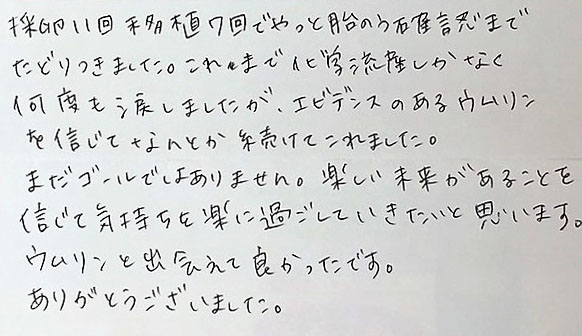 採卵11回 移植7回でやっと胎のう確認まで
たどりつきました。これまで化学流産しかなく
何度も涙しましたが、エビデンスのあるウムリン
を信じてなんとか続けてこれました。
まだゴールではありません。楽しい未来があることを
信じて気持ちを楽に過ごしていきたいと思います。
ウムリンと出会えて良かったです。
ありがとうございました。